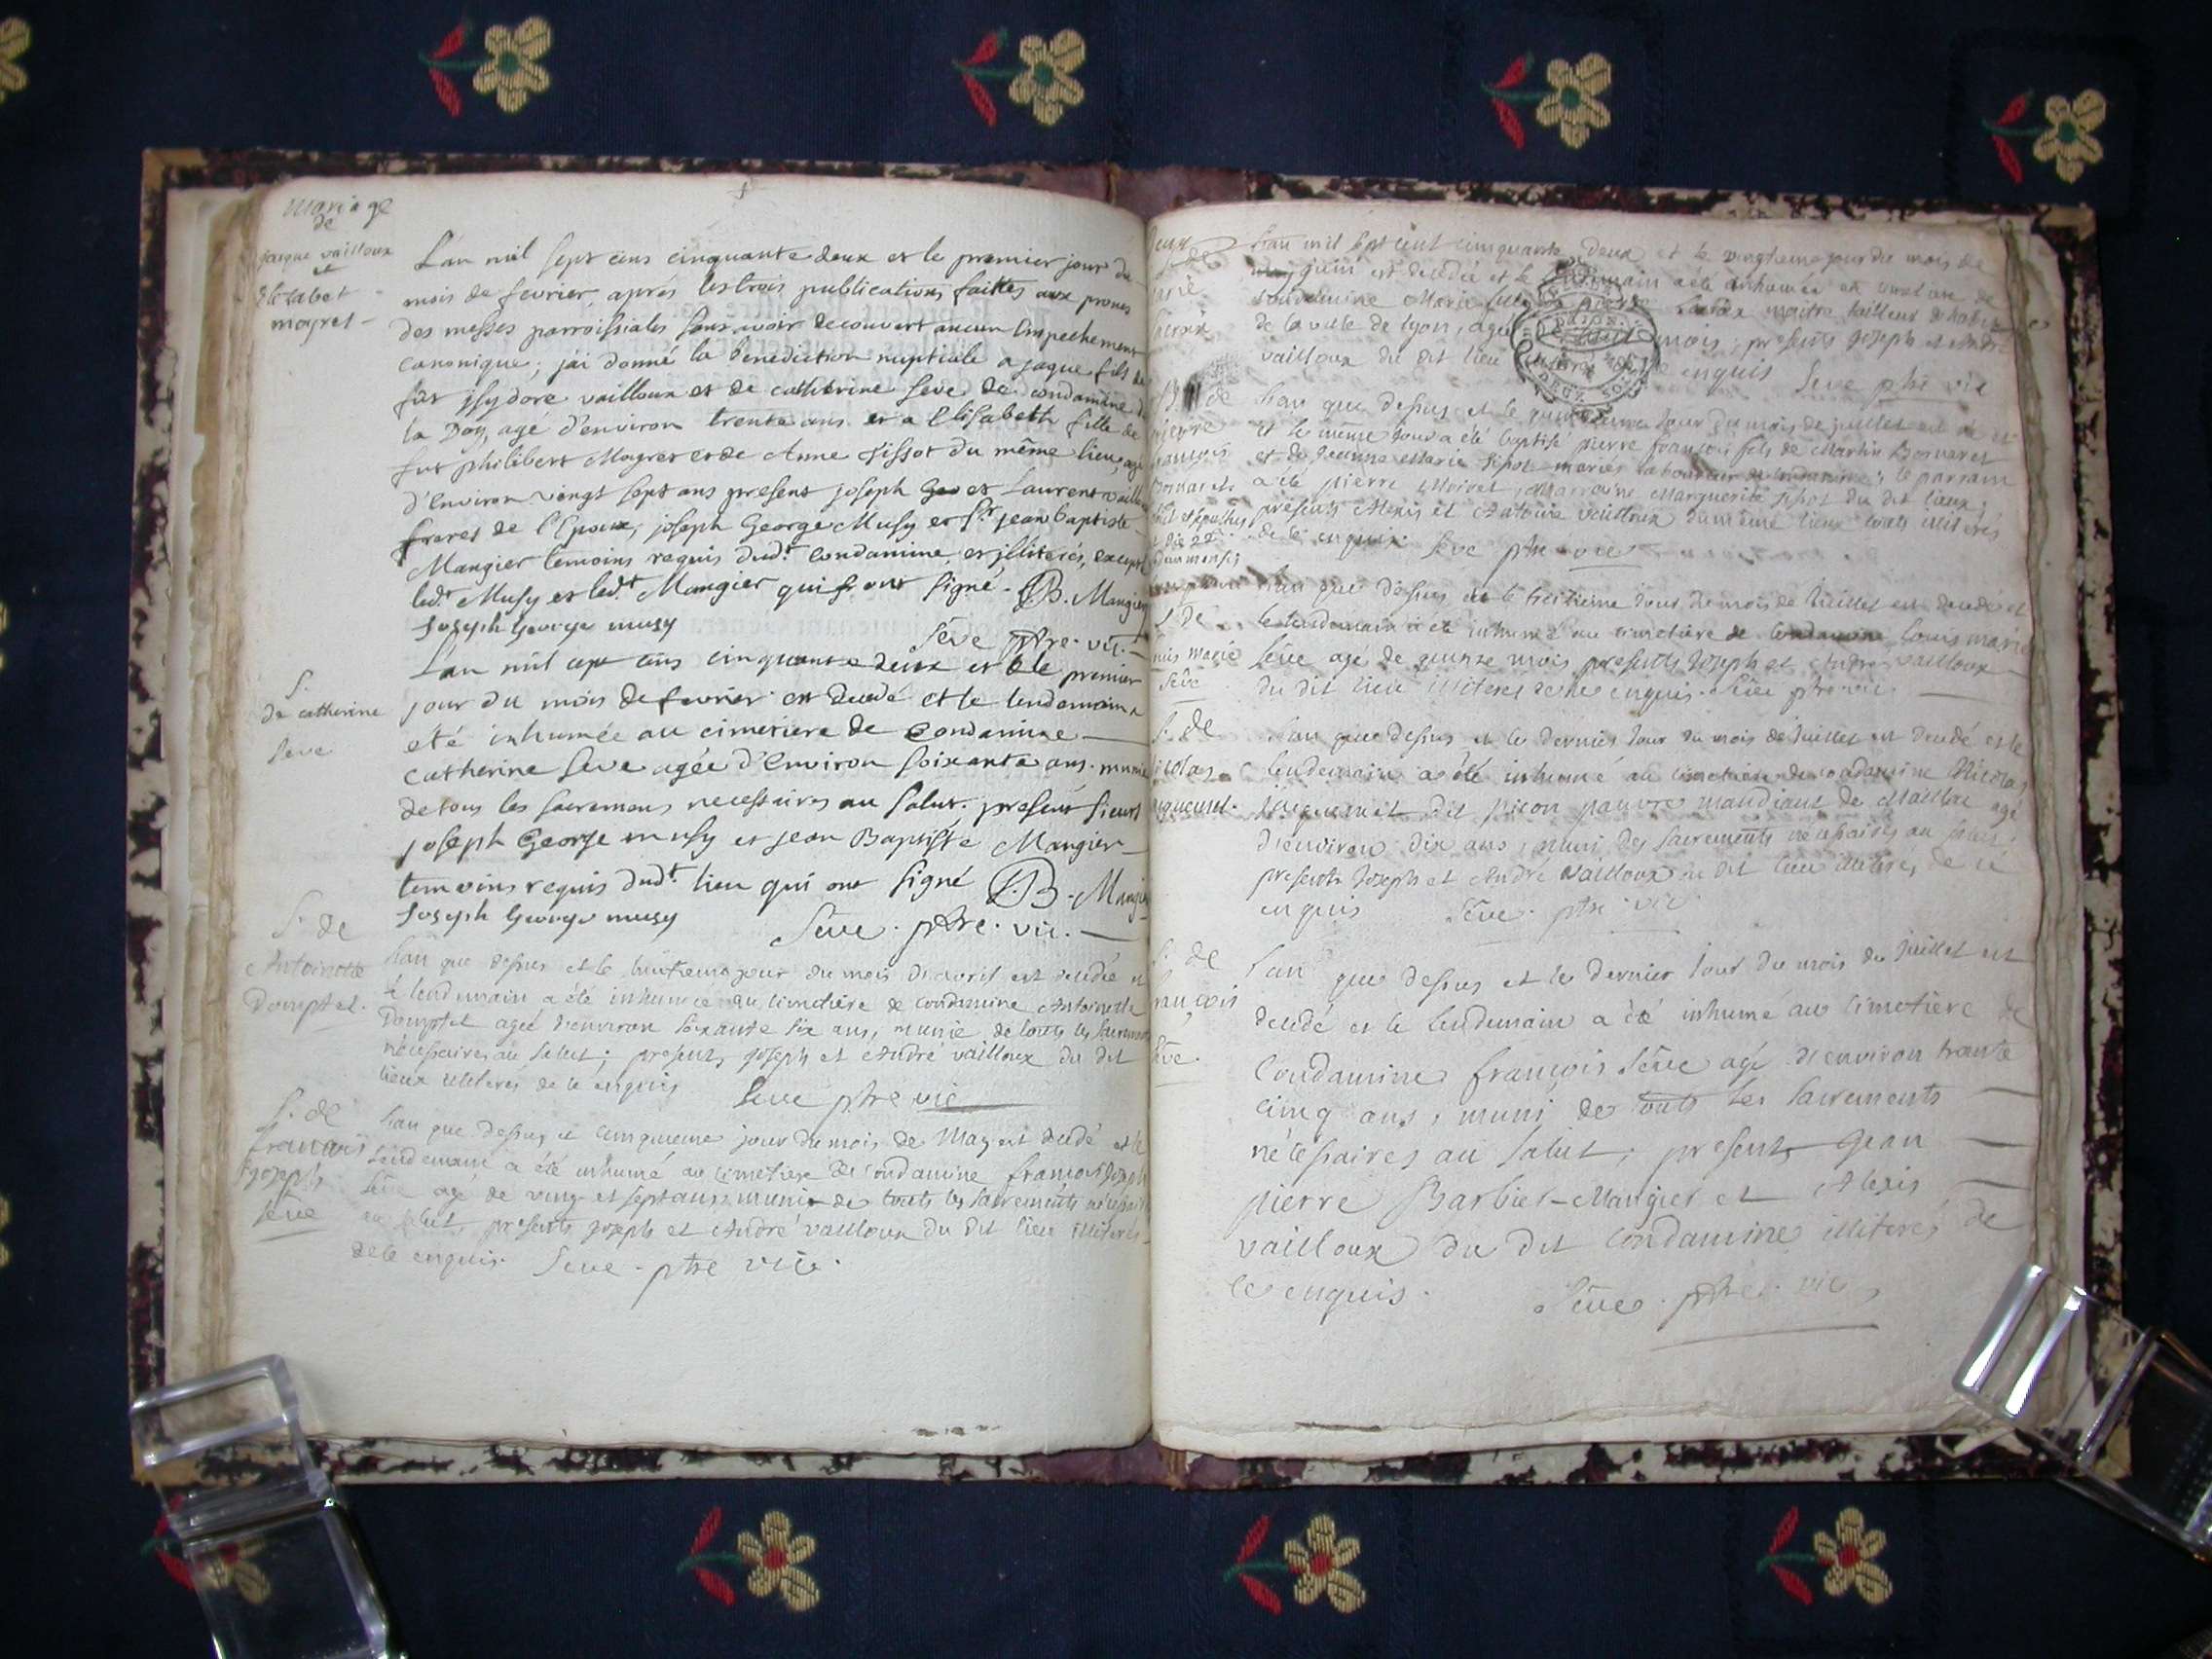 Mariage
de
jacque vailloux
et
Elizabet
mayret
L'an mil sept cens cinquante deux et le premier jour du
mois de fevrier, aprés les trois publications faittes aux prones
des messes parroissiales sans avoir decouvert aucun empechement
canonique; j'ai donné la benediction nuptiale a jaque fils de
fut jsydore vailloux et de catherine seve de condamine de
la Doy, agé d'environ trente ans et a Elisabeth fille de
fut philibert Mayret et de Anne sissot du même lieu, agé
d'environ vingt sept ans present joseph et Laurent vailloux
freres de l'Epoux, joseph George Musy et Sr jean baptiste
Mangier temoins requis dudt. condamine, et jlliterés, except
ledt Musy et ledt Mangier qui ont signé. JB. Mangier
Joseph George musy
Seve ptre. vic.
S.
de catherine
seve
L'an mil sept cens cinquante deux et le premier
jour du mois de fevrier est decedé et le lendemain a
été inhumée au cimetiere de Condamine
catherine seve agée d'environ soixante ans. munie
de tous les sacremens necessaires au salut. present sieurs
joseph George musy et jean Baptiste Mangier
temoins requis dudt lieu qui ont signé JB. Mangier
Joseph George musy
Seve. ptre. vic.
S. de
Antoinette
Domptet.
L'an que dessus et le huitieme jour du mois d'avril est decedée et
le lendemain a été inhumée au cimetiére de condamine Antoinette
Domptet ageé d'environ soixante six ans, munie de touts les sacrements
nécessaires au salut; presents joseph et André vailloux du dit
lieux illiterés de ce enquis Seve ptre vic
S. de
françois
joseph
seve
L'an que dessus et cinquieme jour du mois de May est decedé et le
lendemain a été inhumé au cimetiere de Condamine françois joseph
Sève agé de vingt et sept ans muni de touts les sacrements nécessaires
au salut, presents joseph et André vailloux du dit lieu illiterés
de ce enquis. Seve. ptre vic.
S. de
Marie
Lacroix
L'an mil sept cent cinquante deux et le vingtieme jour du mois de
juin est decedée et le lendemain a été inhumée au cimetiere de
Condamine Marie fille de pierre Lacroix maitre tailleur d'habits
de la ville de lyon, agée de mois; presents joseph et André
vailloux du dit lieu enquis Seve ptre vic
B. de
pierre
françois
Bornaret
L'an que dessus et le jour du mois de juillet est né et
et le même jour a été baptisé pierre françois fils de Martin Bornaret
et de jeanne Marie mariés de condamine; le parrain
a été pierre Marraine Marguerite du dit lieux;
presents Alexis et Antoine vailloux du même lieux touts illiterés
de ce enquis. Seve ptre vic
S. de
Louis marie
Sêve
L'an que dessus et le treizieme jour du mois de Juillet est decedé et
le lendemain a été inhumé au cimetiére de Condamine Louis marie
Sêve agé de quinze mois presents Joseph et André vailloux
du dit lieu illiterés de ce enquis. Sêve ptre vic.
S. de
Nicolas
L'an que dessus et le dernier Jour du mois de Juillet est decedé et le
lendemain a été inhumé au cimetiere de condamine Nicolas
dit pauvre mandiant de Maillat agé
d'environ dix ans, muni des sacrements nécessaires au salut;
presents Joseph et André vailloux du dit lieu illiterés de ce
enquis Sêve. ptre. vic.
S. de
françois
Sêve.
L'an que dessus et le dernier Jour du mois de Juillet est
decedé et le lendemain a été inhumé au cimetiere de
Condamine françois Sêve agé d'environ trante
cinq ans, muni de touts les sacrements
nécéssaires au salut; presents Jean
pierre Barbiet-Mangier et Alexis
vailloux du dit Condamine illiterés de
ce enquis.
Sêve. ptre. vic